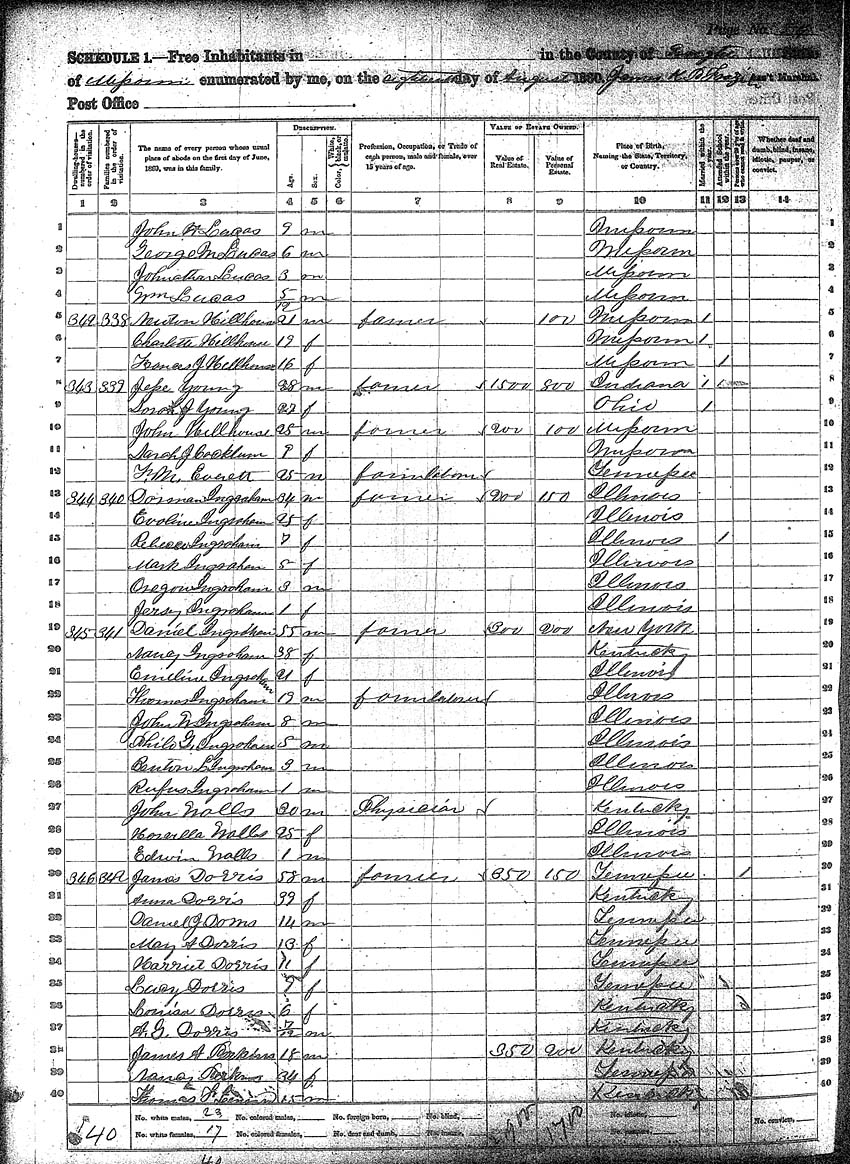 Page No.
SCHEDULE 1.—Free Inhabitants in in the County of Douglas
of Missouri enumerated by me, on the eighteenth day of August 1860. James K. Ass't Marshal.
Post Office
Dwelling-houses— numbered in the order of visitation.
Families numbered in the order of visitation.
The name of every person whose usual place of abode on the first day of June, 1860, was in this family.
DESCRIPTION.
Age.
Sex.
Color, White, black, or mulatto.
Profession, Occupation, or Trade of each person, male and female, over 15 years of age.
VALUE OF ESTATE OWNED.
Value of Real Estate.
Value of Personal Estate.
Place of Birth, Naming the State, Territory, or Country.
Married within the year.
Attended School within the year.
Persons over 20 y'rs of age who cannot read & write.
Whether deaf and dumb, blind, insane, idiotic, pauper, or convict.
1 2 3 4 5 6 7 8 9 10 11 12 13 14
1 John H Lucas 9 m Missouri 1
2 George M Lucas 6 m Missouri 2
3 Johnathan Lucas 3 m Missouri 3
4 Wm Lucas 5/12 m Missouri 4
5 342 338 Newton Hillhouse 21 m farmer 100 Missouri 1 5
6 Charlotte Hillhouse 19 f Missouri 1 6
7 Frances J Hillhouse 16 f Missouri 1 7
8 343 339 Jesse Young 28 m farmer 1500 800 Indiana 1 1 8
9 Sarah J Young 22 f Ohio 1 9
10 John Hillhouse 25 m farmer 200 100 Missouri 10
11 Sarah J Cocklum 8 f Missouri 11
12 Everett 25 m farm laborer Tennessee 12
13 344 340 Dorman Ingraham 34 m farmer 200 150 Illinois 13
14 Evoline Ingraham 25 f Illinois 14
15 Rebecca Ingraham 7 f Illinois 1 15
16 Mark Ingraham 5 f Illinois 16
17 Oregon Ingraham 3 m Illinois 17
18 Jersey Ingraham 1 f Illinois 18
19 345 341 Daniel Ingraham 55 m farmer 300 200 New York 19
20 Nancy Ingraham 38 f Kentucky 20
21 Emiline Ingraham 21 f Illinois 21
22 Thomas Ingraham 19 m farm laborer Illinois 22
23 John N Ingraham 8 m Illinois 23
24 Philo G Ingraham 5 m Illinois 24
25 Benton L Ingraham 3 m Illinois 25
26 Rufus Ingraham 1 m Illinois 26
27 John Walls 30 m Physician Kentucky 27
28 Walls 25 f Illinois 28
29 Edwin Walls 1 m Illinois 29
30 346 342 James Dorris 58 m farmer 350 150 Tennessee 1 30
31 Anna Dorris 39 f Kentucky 31
32 Daniel J Dorris 14 m Tennessee 32
33 Mary A Dorris 13 f Tennessee 33
34 Harriet Dorris 11 f Tennessee 34
35 Lucy Dorris 9 f Tennessee 35
36 Louisa Dorris 6 f Kentucky 36
37 A. G. Dorris m Kentucky 37
38 James A 18 m 350 200 Kentucky 38
39 Nancy 34 f Tennessee 39
40 Thomas F 15 m Kentucky 40
40 No. white males, 23 No. colored males, No. foreign born, No. blind, No. idiotic, No. convict,
No. white females, 17 No. colored females, No. deaf and dumb, No. insane,
40